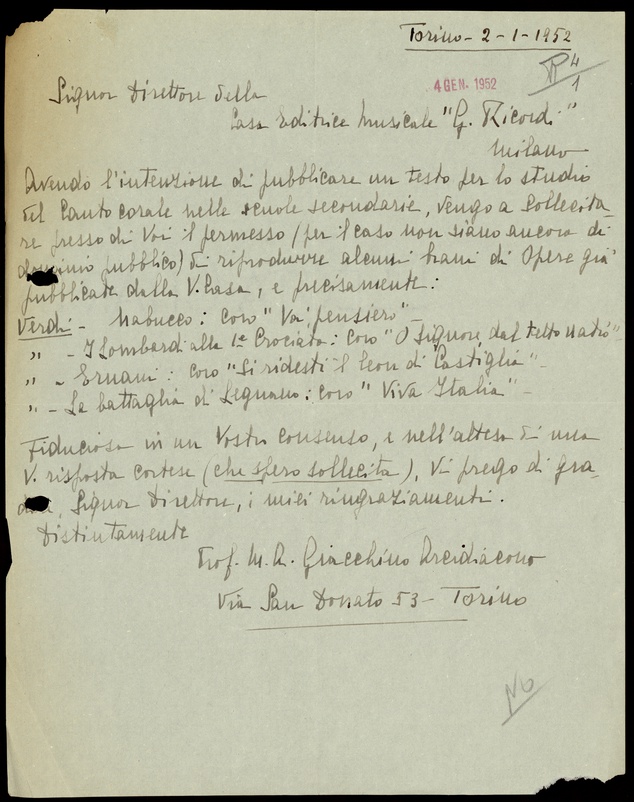 Torino - 2 - 1 - 1952
R 4
1
4 GEN. 1952
Signor Direttore della
Casa Editrice Musicale "G. Ricordi"
Milano
Avendo l'intenzione di pubblicare un testo per lo studio
del Canto corale nelle scuole secondarie, vengo a sollecita-
re presso di Voi il permesso (per il caso non siano ancora di
dominio pubblico) di riprodurre alcuni brani di Opere già
pubblicate dalla V. Casa, e precisamente:
Verdi - Nabucco: coro "Va' pensiero" -
" - I Lombardi alla 1ª Crociata: coro "O Signore dal tetto natìo" -
" - Ernani: coro "Si ridesti il leon di Castiglia" -
" - La battaglia di Legnano: coro "Viva Italia" -
Fiducioso in un Vostro consenso, e nell'attesa di una
V. risposta cortese (che spero sollecita), Vi prego di gra-
dire, Signor Direttore, i miei ringraziamenti.
Distintamente
Prof. M. A. Giacchino Arcidiacono
Via San Donato 53 - Torino
NO